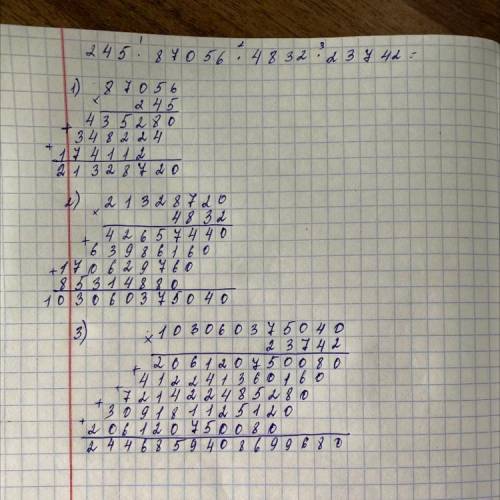 245 · 87056 · 4832 · 23742 =
1 2 3
1) 87056
× 245
+ 435280
+ 348224
174112
21328720
2) 21328720
× 4832
+ 42657440
63986160
+ 170629760
85314880
103060375040
3) × 103060375040
23742
+ 206120750080
+ 412241360160
+ 721422485280
+ 309181125120
206120750080
2446859408699680